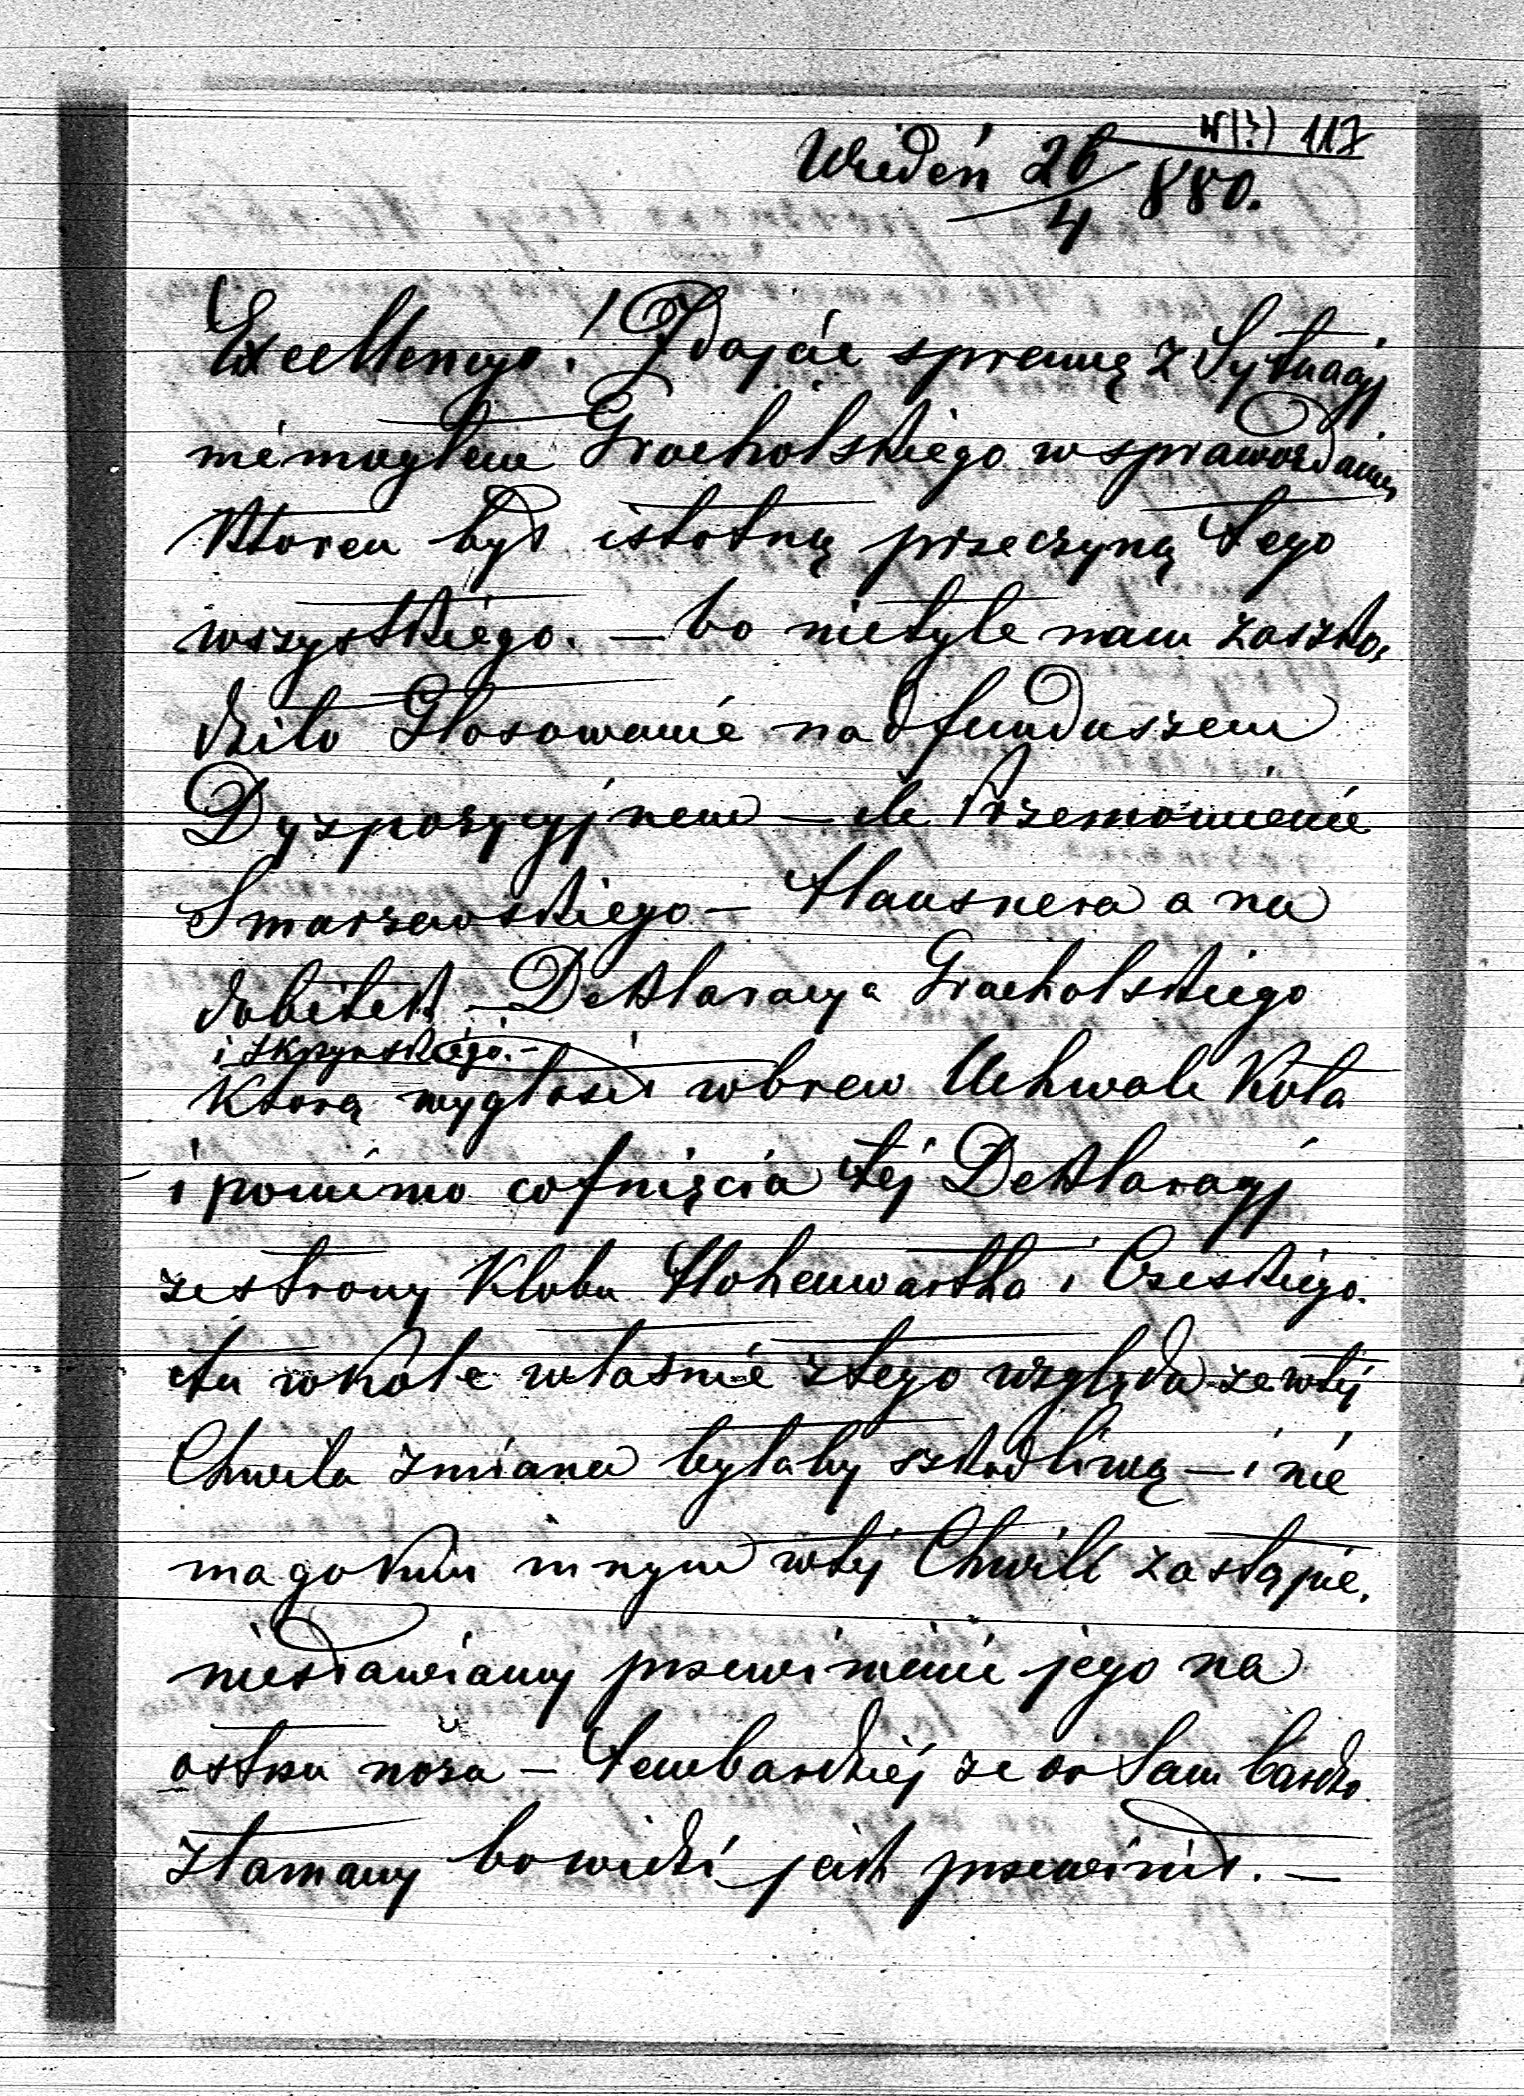 N(?) 117
Wiedeń 26/4 880.
Excellencyo! Zdając sprawę z Sytuacyj
niemogłem Grocholskiego w sprawozdaniu
Ktoren był istotną przeczyną tego
wszystkiego. — bo nietyle nam zaszko,
dziło Głosowanie nad funduszem
Dyzpozycyjnem — ile Przemówienie
Smarzewskiego — Hausnera a na
dobitek — Deklaracya Grocholskiego
i Skrzyńskiego. —
Ktorą wygłosił wbrew Uchwale Koła
i pomimo cofnięcia tej Deklaracyj
ze strony Klubu Hohenwartha i Czeskiego.
tu w kole właśnie z tego względu ze wtej
Chwila zmiana byłaby szkodliwą — i nie
ma go kim innym wtej Chwili zastąpić,
niestawiamy przewinienie jego na
ostzu noża — tembardziej ze on sam bardzo
złamany bo widzi jak przewinił. —